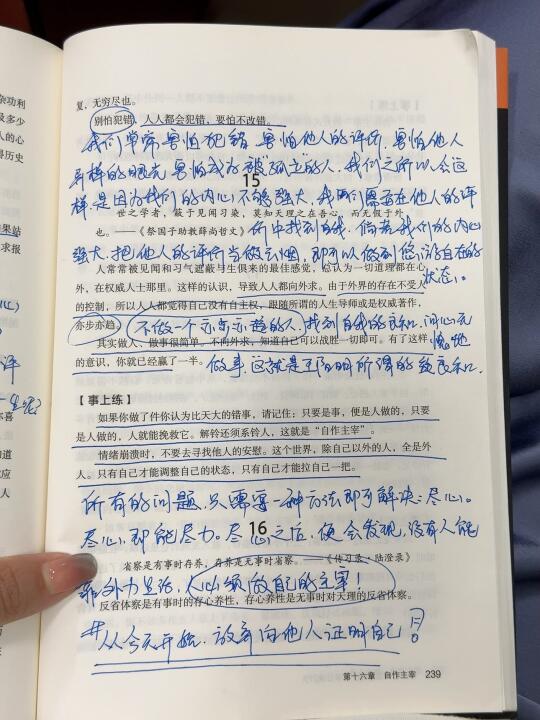 复，无穷尽也。
别怕犯错，人人都会犯错，要怕不改错。
我们常常害怕犯错，害怕他人的评价，害怕他人
异样的眼光，害怕成为被"孤立"的人。我们之所以会这
15
样是因为我们的内心不够强大，我们需要在他人的评
世之学者，蔽于见闻习染，莫知天理之在吾心，而无假于外
也。——《祭国子助教薛尚哲文》
价中找到自我。倘若我们的内心
强大，把他人的评价当做云烟，即可以做到悠游自在的
状态。
人常常被见闻和习气遮蔽与生俱来的最佳感觉，总认为一切道理都在心
外，在权威人士那里。这样的认识，导致人人都向外求。由于外界的存在不受人
的控制，所以人人都觉得自己没有自主权，跟随所谓的人生导师或是权威著作，
亦步亦趋。
不做一个亦步亦趋的人，找到自我的良知，问心无愧地
其实做人、做事很简单。不向外求，知道自己可以战胜一切即可。有了这样
的意识，你就已经赢了一半。
做事，这就是王阳明所谓的致良知。
【事上练】
如果你做了件你认为比天大的错事，请记住：只要是事，便是人做的，只要
是人做的，人就能挽救它。解铃还须系铃人，这就是"自作主宰"。
情绪崩溃时，不要去寻找他人的安慰。这个世界，除自己以外的人，全是外
人。只有自己才能调整自己的状态，只有自己才能拉自己一把。
所有的问题，只需要一种方法即可解决：尽心。
尽心，即能尽力。尽心之后，便会发现，没有人能
16
省察是有事时存养，存养是无事时省察。——《传习录·陆澄录》
靠外力生活，人必须做自己的主宰！
反省体察是有事时的存心养性，存心养性是无事时对天理的反省体察。
#从今天开始，放弃向他人证明自己！
第十六章 自作主宰 239
杂功利
及多少
人的心
得历史
果站
求报
评
生呢？
你喜
知道
效应
人